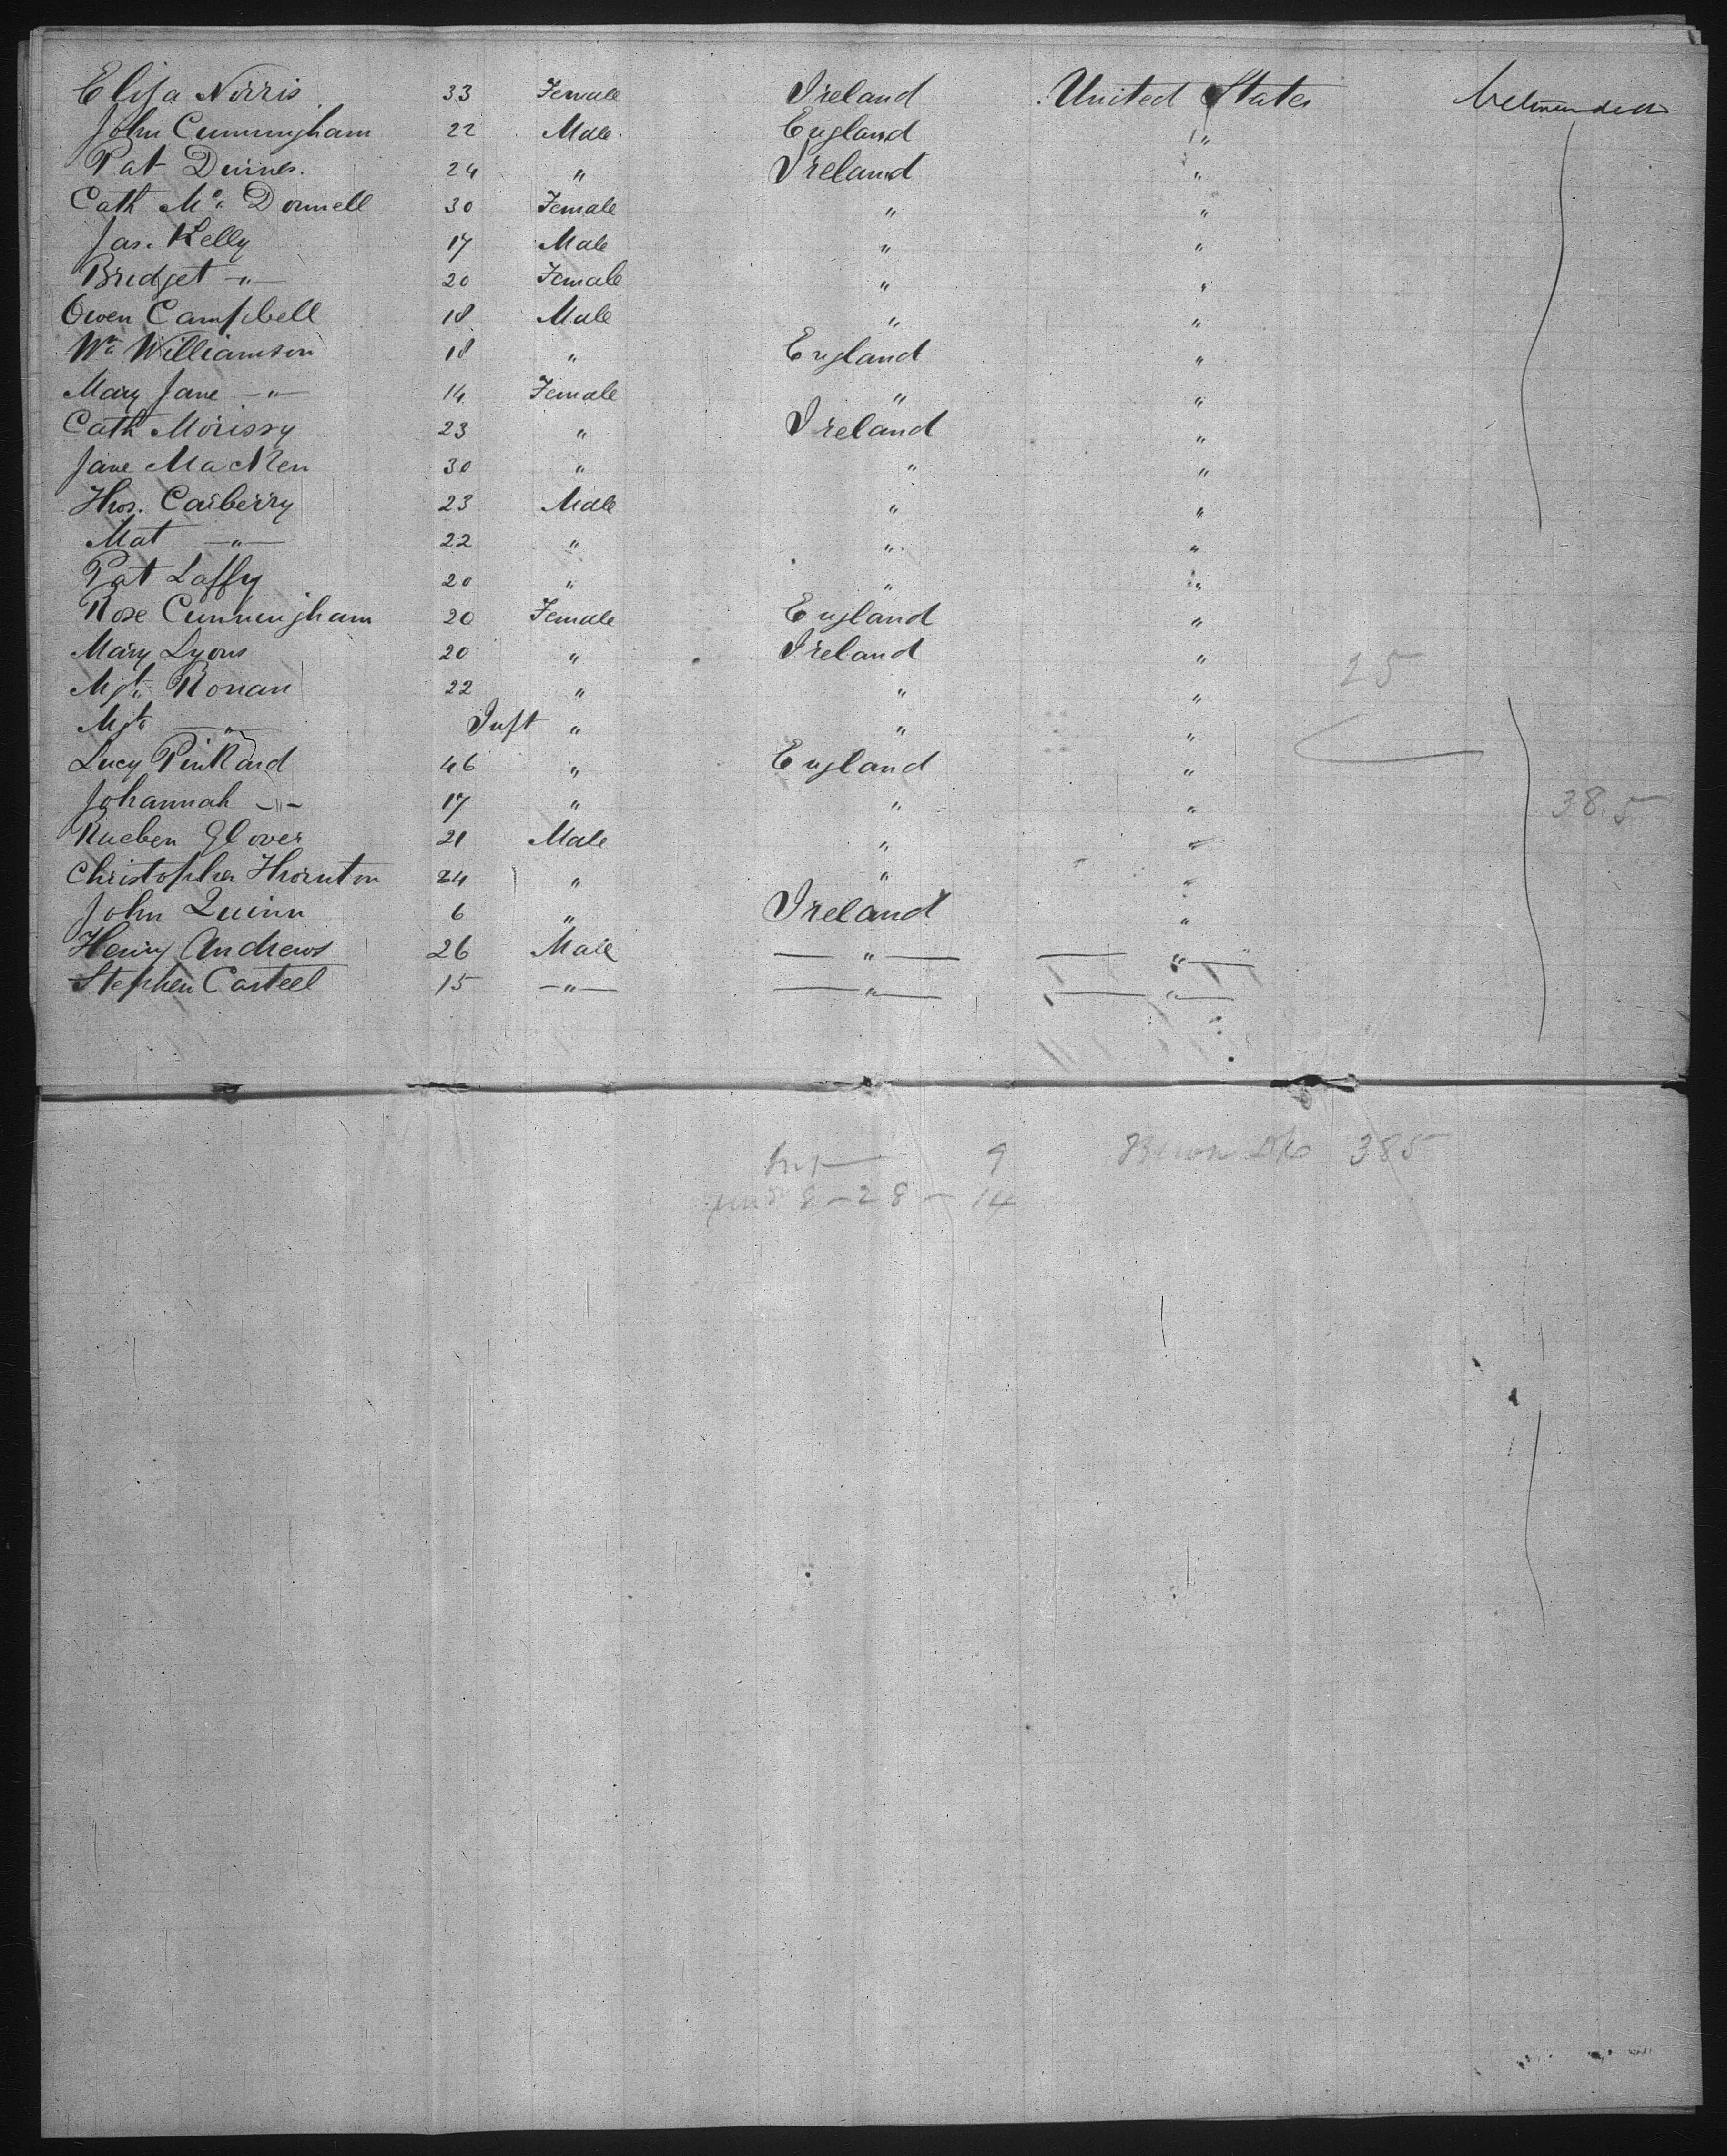 Eliza Norris 33 Female Ireland United States
John Cunningham 22 Male England "
Pat 24 " Ireland "
Cath Mc Donnell 30 Female " "
Jas. Kelly 17 Male " "
Bridget " 20 Female " "
Owen Campbell 18 Male " "
Wm Williamson 18 " England "
Mary Jane " 14 Female " "
Cath Morissy 23 " Ireland "
Jane Macken 30 " " "
Thos. Carberry 23 Male " "
Mat " 22 " " "
Pat Laffy 20 " " "
Rose Cunningham 20 Female England "
Mary Lyons 20 " Ireland "
25
Mgt. Ronan 22 " " "
Mgt " Inft " " "
Lucy Pinkard 46 " England "
Johannah " 17 " " "
385
Rueben Glover 21 Male " "
Christopher Thornton 24 " " "
John Quinn 6 " Ireland "
Henry Andrews 26 Male " "
Stephen Casteel 15 " " "
9 385
8 - 28 - 14